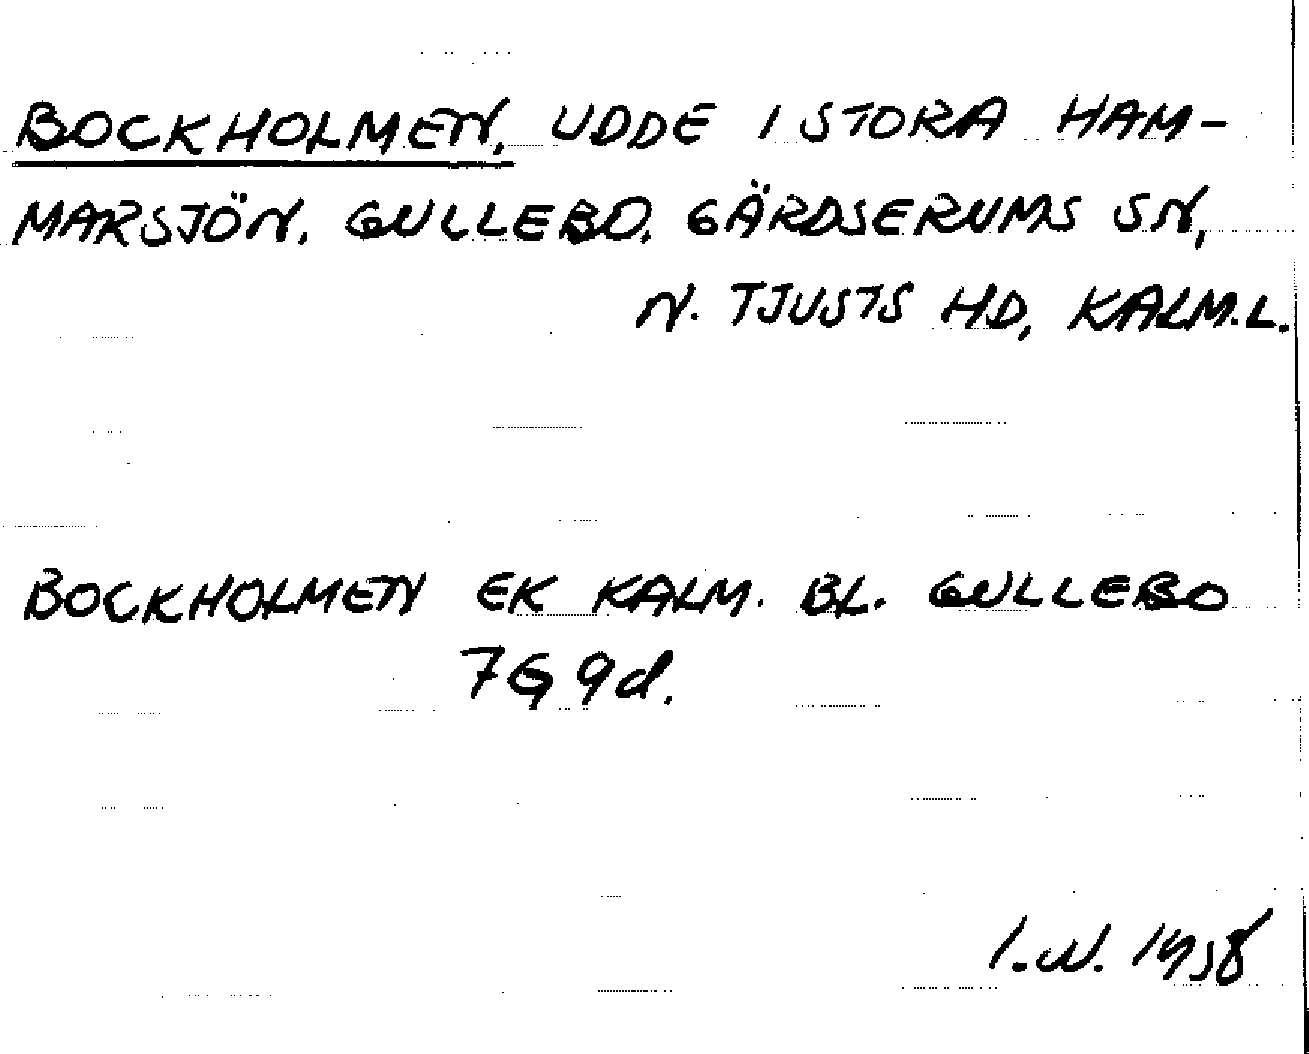 BOCKHOLMEN, UDDE I STORA HAM-
MARSJÖN. GULLEBO, GÄRDSERUMS SN,
N. TJUSTS HD, KALM.L.
BOCKHOLMEN EK KALM. BL. GULLEBO
7G 9d.
I.W. 1958